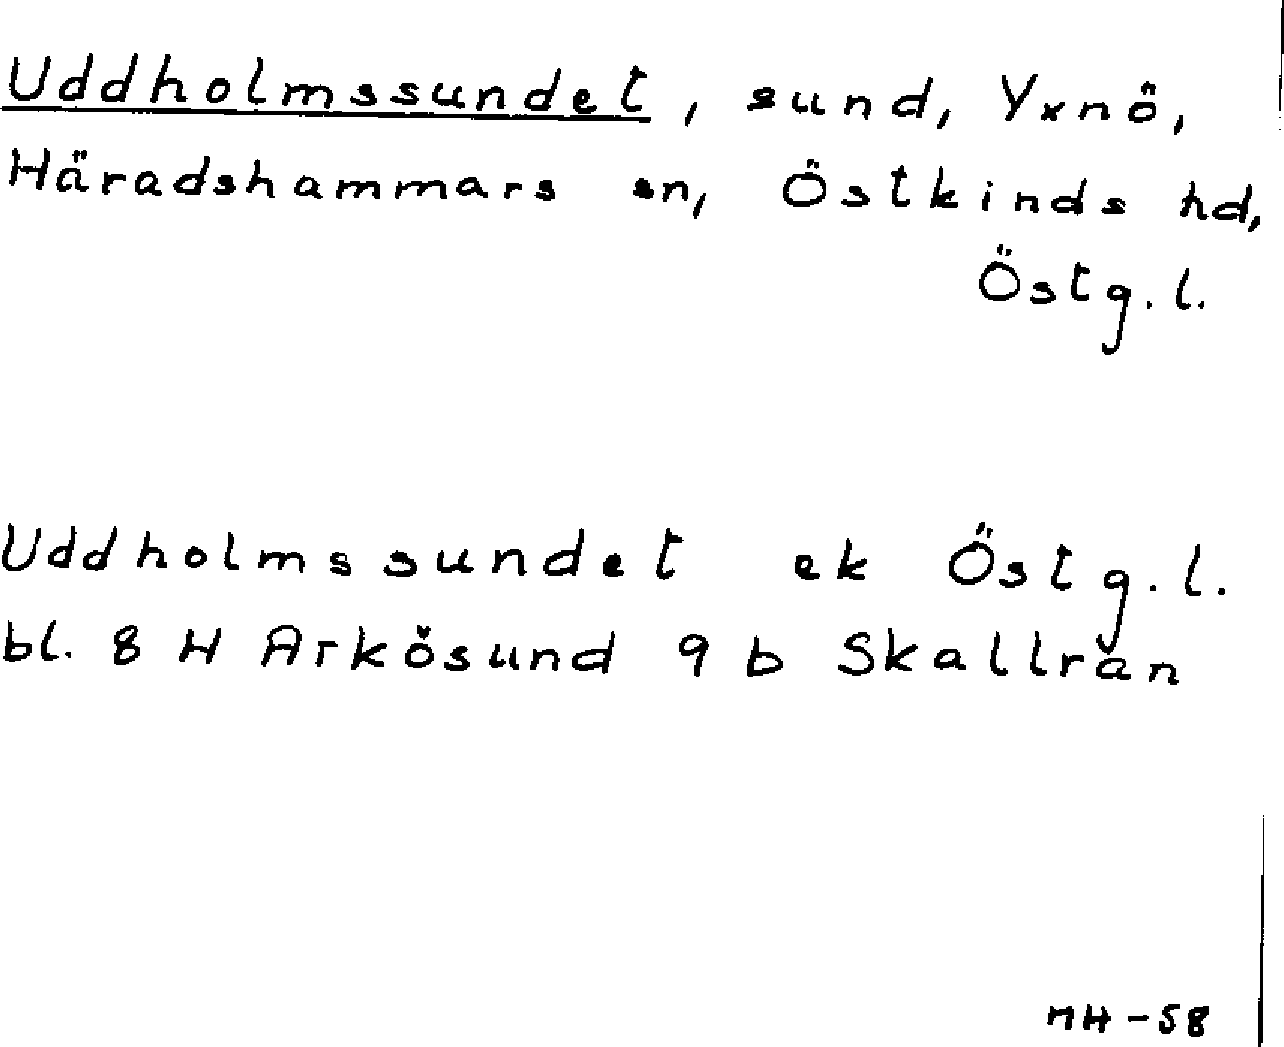 Uddholmssundet, sund, Yxnö,
Häradshammars sn, Östkinds hd,
Östg. l.
Uddholmssundet ek Östg. l.
bl. 8 H Arkösund 9 b Skallrån
MH-58